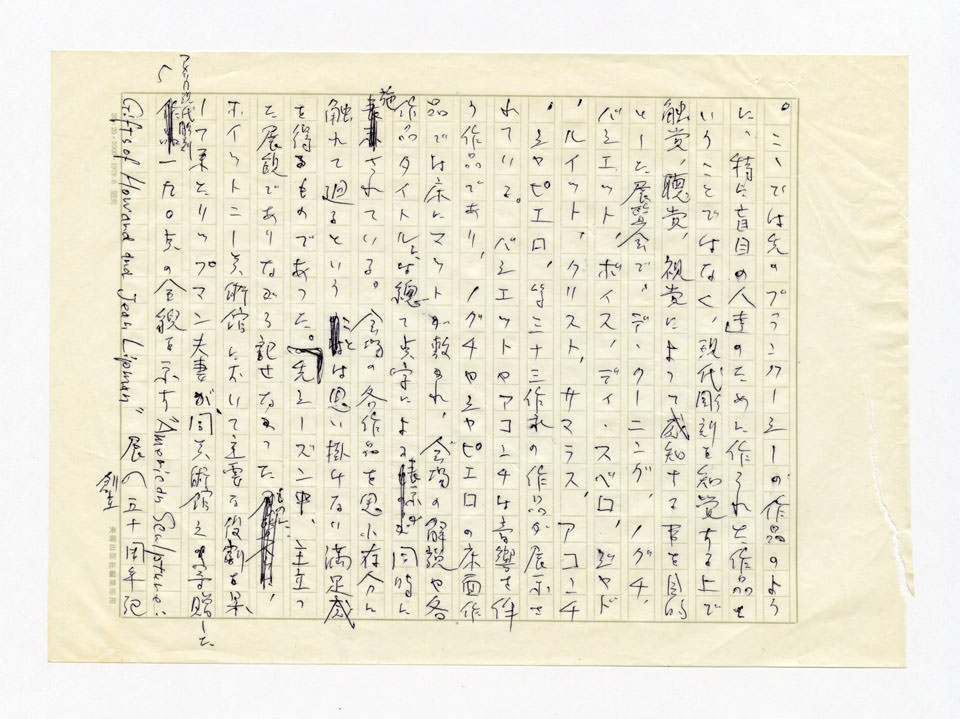 。こゝでは先のブランクーシーの作品のよう
に、特に盲目の人達のために作られた作品を
いうことではなく、現代彫刻を知覚する上で
触覚、聴覚、視覚によって感知する事を目的
とした展覧会で、デ・クーニング、ノグチ、
バシエット、ボイス、ディ・スベロ、ジャド
、ルイット、クリスト、サマラス、アコンチ
、シャピエロ、等三十三作家の作品が展示さ
れている。バシエットやアコンチは音響を伴
う作品であり、ノグチやシャピエロの床面作
品では床にマットが敷かれ、会場の解説や各
作品タイトルは総て点字による 同時に
施されている。会場の各作品を思ふ存分に
触れて廻るという ことは思い掛けない満足感
を得るものであった。先シーズン中、主立っ
た展観でありながら記せなかった
ホイットニー美術館に於いて重要な役割を果
して来たリップマン夫妻が、同美術館に寄贈した
アメリカ現代彫刻 一九〇点の全貌を示す"American Sculpture:
Gifts of Howard and Jean Lipman" 展(五十周年記